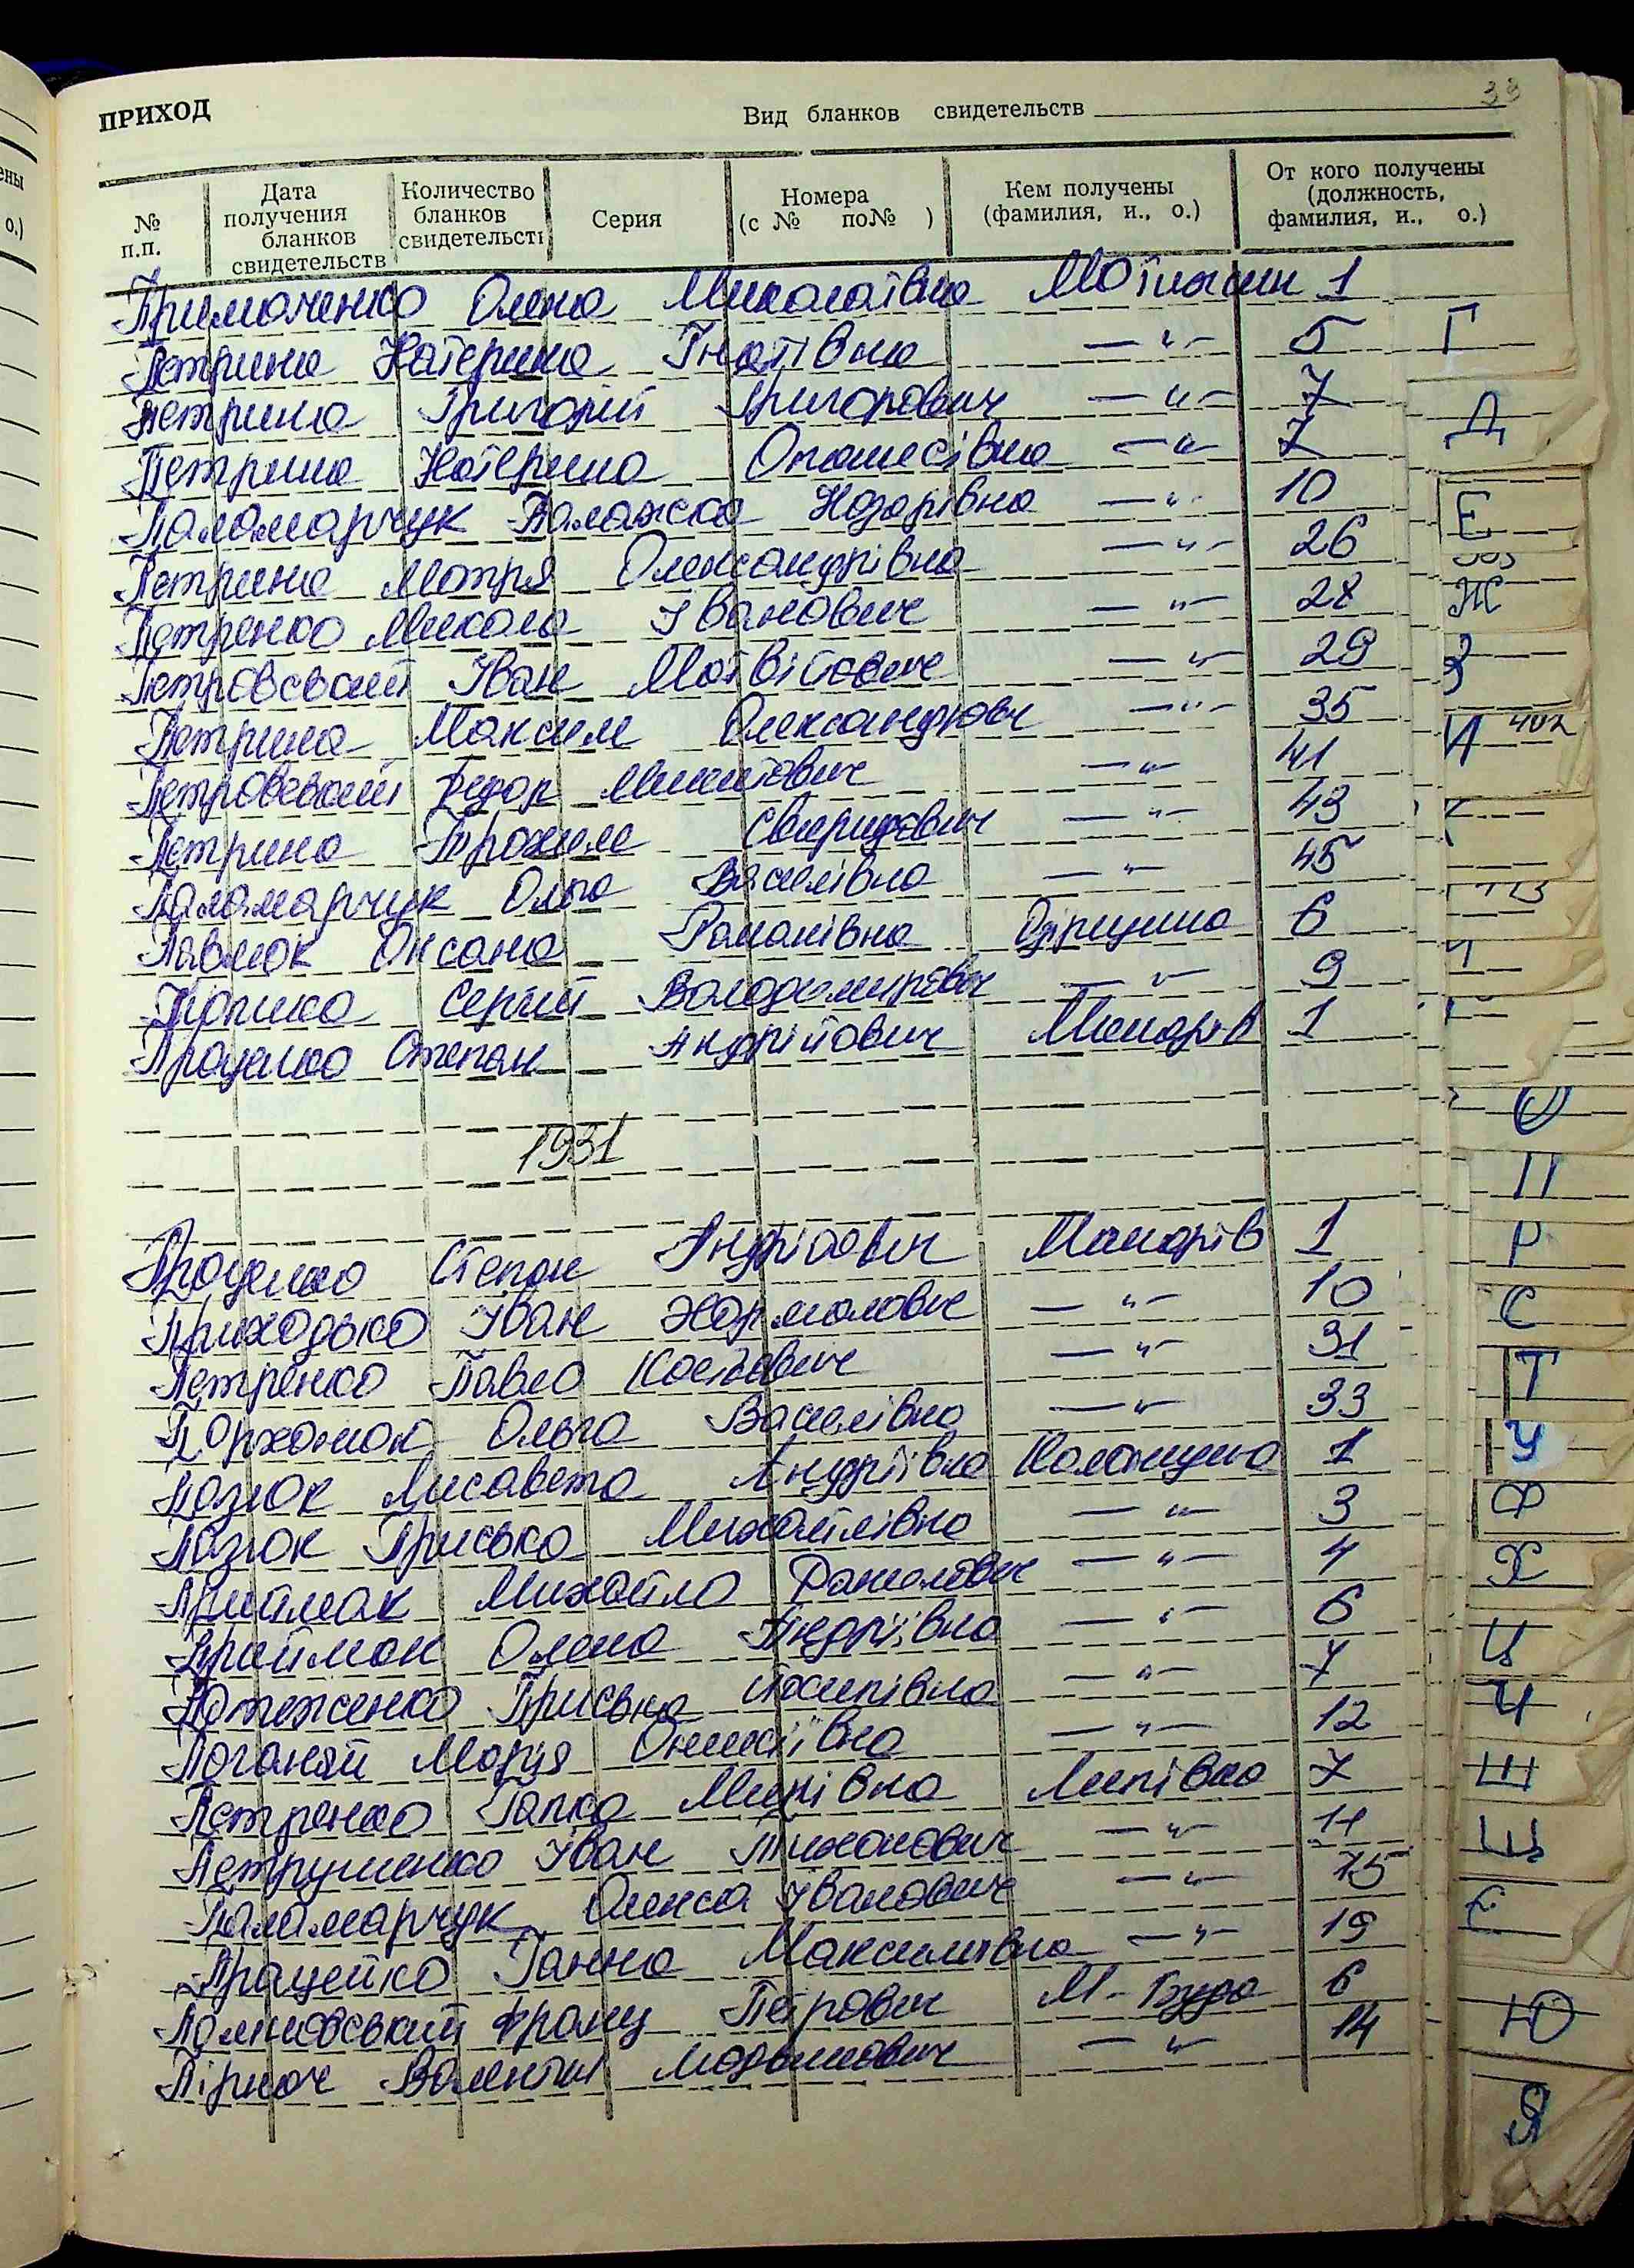 39
ПРИХОД Вид бланков свидетельств
№ п.п. Дата получения бланков свидетельств Количество бланков свидетельств Серия Номера (с № по№ ) Кем получены (фамилия, и., о.) От кого получены (должность, фамилия, и., о.)
Примаченко Олена Миколаївна Мотижин 1
Петрина Катерина Гнатівна —〃— 5
Петрина Григорій Григорович —〃— 7
Петрина Катерина Опанасівна —〃— 7
Паламарчук Палажка Назарівна —〃— 10
Петрина Мотря Олександрівна —〃— 26
Петренко Микола Іванович —〃— 28
Петровський Іван Матвійович —〃— 29
Петрина Максим Олександрович —〃— 35
Петровський Федор Микитович —〃— 41
Петрина Трохим Свиридович —〃— 43
Паламарчук Ольга Василівна —〃— 45
Павлюк Оксана Романівна 6
Сергій Володимирович —〃— 9
Проценко Степан Андрійович Макарів 1
1931
Проценко Степан Андрійович Макарів 1
Приходько Іван Ярмолович —〃— 10
Петренко Павло Костьович —〃— 31
Пархомюк Ольга Василівна —〃— 33
Пазюк Лисавета Андріївна Колонщина 1
Пазюк Приська Михайлівна —〃— 3
Приймак Михайло Данилович —〃— 4
Приймак Олена Андріївна —〃— 6
Приська Йосипівна —〃— 7
Поганяй Марія —〃— 12
Петренко Гапка Липівка 7
Петрушенко Іван Тихонович —〃— 11
Паламарчук Олекса Іванович —〃— 15
Працейко Ганна Максимівна —〃— 19
Франц Петрович М-Буда 6
Валентин —〃— 14
Г
Д
Е
Ж
З
И
О
П
Р
С
Т
У
Ф
Х
Ц
Ч
Ш
Щ
Є
Ю
Я